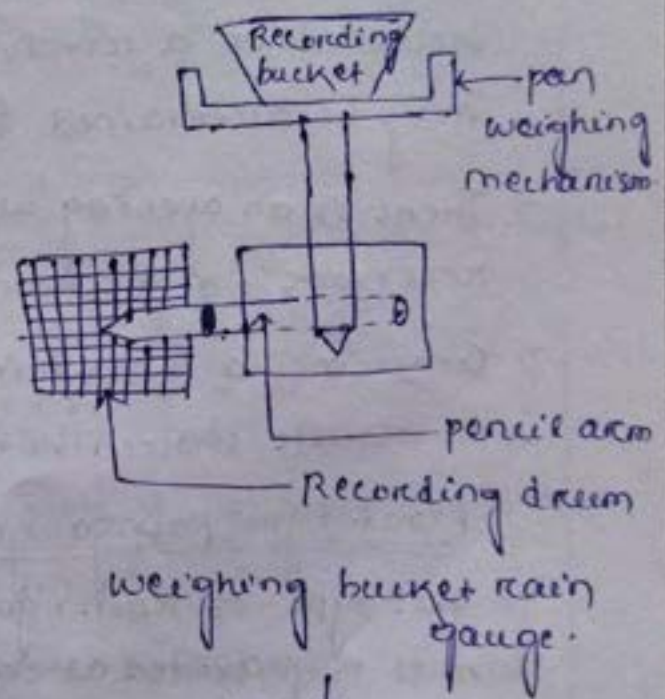 Recording
bucket
pan
weighing
mechanism
pencil arm
Recording drum
weighing bucket rain
gauge.